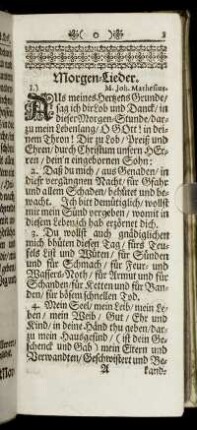 ( o ) 3
Morgen-Lieder.
1.) M. Joh. Mathesius.
AUs meines Hertzens Grunde/
sag ich dir Lob und Danck/ in
dieser Morgen-Stunde/dar-
zu mein Lebenlang/ O GOtt! in dei-
nem Thron! Dir zu Lob/ Preiß und
Ehren/ durch Christum unsern HEr-
ren/ dein'n eingebornen Sohn:
2. Daß du mich/ aus Genaden/ in
dieser vergangnen Nacht/ für Gfahr
und allem Schaden/ behütet und be-
wacht. Ich bitt demütiglich/ wollst
mir mein Sünd vergeben/ womit in
diesem Leben/ich hab erzörnet dich.
3. Du wollst auch gnädiglichst
mich bhüten diesen Tag/ fürs Teu-
fels List und Wüten/ für Sünden
und für Schmach/ für Feur- und
Wassers-Noth/ für Armut und für
Schanden/für Ketten und für Ban-
den/ für bösem schnellen Tod.
4. Mein Seel/ mein Leib/mein Le-
ben/ mein Weib/ Gut/ Ehr und
Kind/ in deine Händ thu geben/dar-
zu mein Hausgesind/ (ist dein Ge-
schenck und Gab) mein Eltern und
Verwandten/ Geschwistert und Be-
A kand-